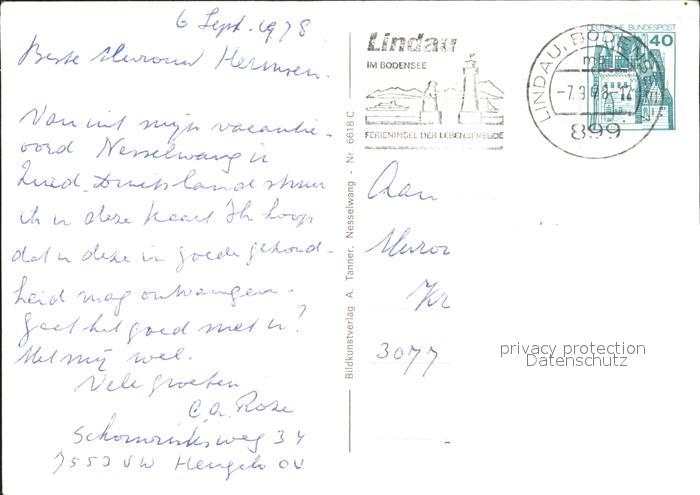 6 Sept. 1978
Beste Mevrouw Hermsen.
Van uit mijn vacantie-
oord Nesselwang in
Zuid-Duitsland stuur
ik u deze kaart. Ik hoop
dat u deze in goede gezond-
heid mag ontvangen.
Gaat het goed met u?
Met mij wel.
Vele groeten
7553 VW Hengelo OV
Bildkunstverlag A. Tanner, Nesselwang - Nr. 6618 C
Lindau
IM BODENSEE
FERIENINSEL DER LEBENSFREUDE
LINDAU, BODENSEE
mp
-7.9.78-17
899
DEUTSCHE BUNDESPOST
40
Aan
3077
privacy protection
Datenschutz